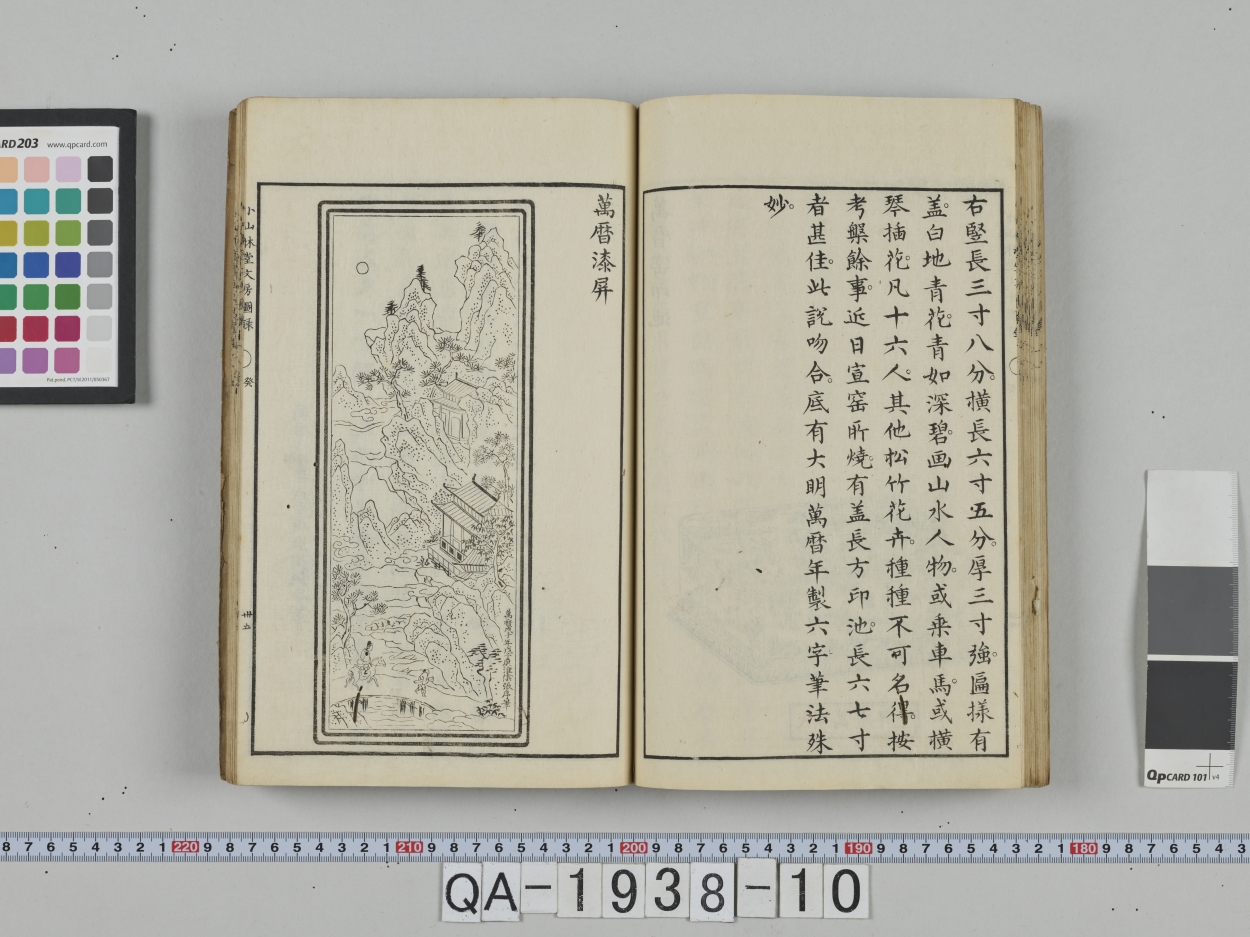 右竪長三寸八分。横長六寸五分。厚三寸強。匾樣有
盖。白地青花。青如深碧。画山水人物。或乘車馬。或横
琴插花。凡十六人。其他松竹花卉。種種不可名得。按
考槃餘事。近日宣窑所燒。有盖長方印池。長六七寸
者甚佳。此說吻合。底有大明萬曆年製六字。筆法殊
妙。
萬曆漆屏
小山林堂文房圖録
癸
卅五
CARD203
www.qpcard.com
QpCARD 101 v4
8 7 6 5 4 3 2 1 220 9 8 7 6 5 4 3 2 1 210 9 8 7 6 5 4 3 2 1 200 9 8 7 6 5 4 3 2 1 190 9 8 7 6 5 4 3 2 1 180 9 8 7 6 5 4 3
QA-1938-10